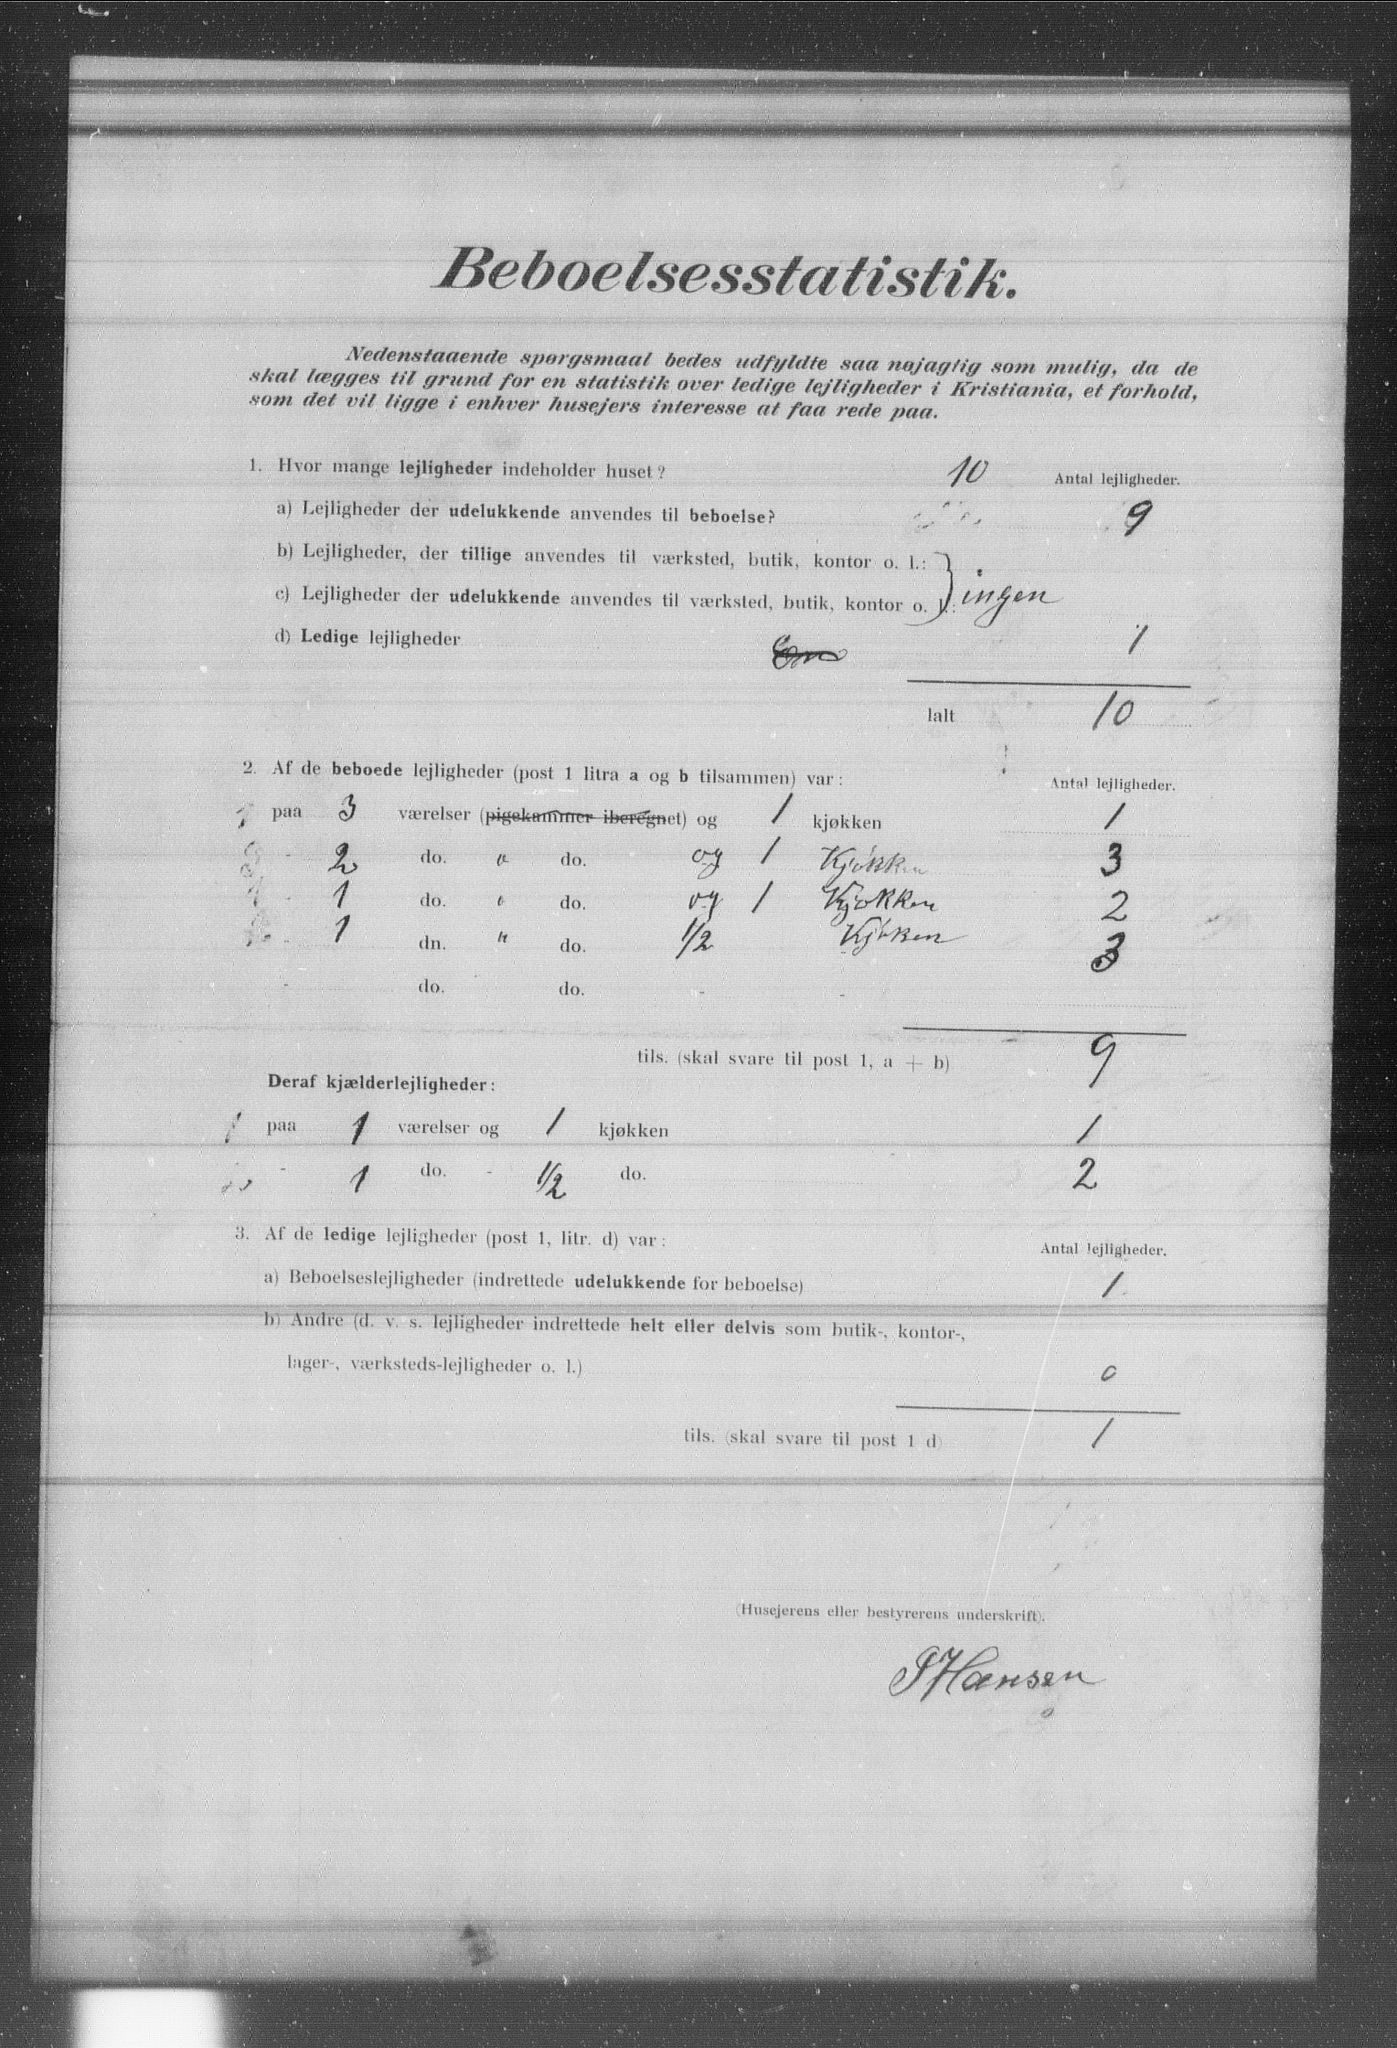 Beboelsesstatistik.
Nedenstaaende spørgsmaal bedes udfyldte saa nøjagtig som mulig, da de
skal lægges til grund for en statistik over ledige lejligheder i Kristiania, et forhold,
som det vil ligge i enhver husejers interesse at faa rede paa.
1. Hvor mange lejligheder indeholder huset? 10 Antal lejligheder.
a) Lejligheder der udelukkende anvendes til beboelse? 9
b) Lejligheder, der tillige anvendes til værksted, butik, kontor o. l.:
c) Lejligheder der udelukkende anvendes til værksted, butik, kontor o. l.: } ingen
d) Ledige lejligheder 1
Ialt 10
2. Af de beboede lejligheder (post 1 litra a og b tilsammen) var: Antal lejligheder.
paa 3 værelser (pigekammer iberegnet) og 1 kjøkken 1
- 2 do. " do. og 1 Kjøkken 3
- 1 do. " do. og 1 Kjøkken 2
- 1 dn. " do. 1/2 Kjøken 3
- do. do. - -
tils. (skal svare til post 1, a + b) 9
Deraf kjælderlejligheder:
1 paa 1 værelser og 1 kjøkken 1
- 1 do. - 1/2 do. 2
3. Af de ledige lejligheder (post 1, litr. d) var: Antal lejligheder.
a) Beboelseslejligheder (indrettede udelukkende for beboelse) 1
b) Andre (d. v. s. lejligheder indrettede helt eller delvis som butik-, kontor-,
lager-, værksteds-lejligheder o. l.) 0
tils. (skal svare til post 1 d) 1
(Husejerens eller bestyrerens underskrift).
PHansen